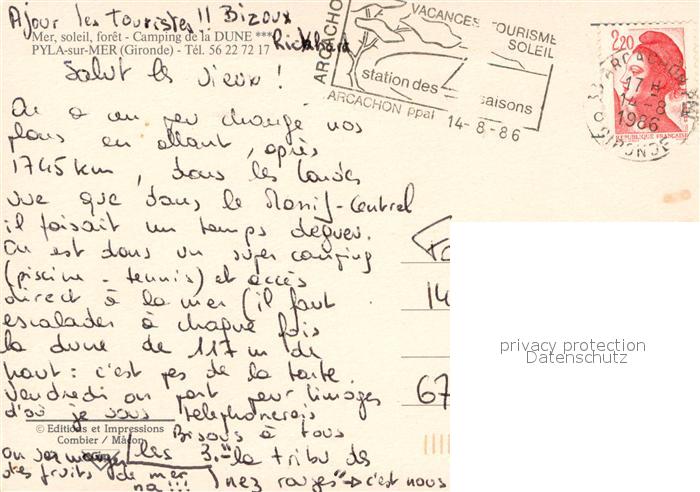 Ajour les touristes !! Bizoux
Rickhard
Mer, soleil, forêt - Camping de la DUNE ***
PYLA-sur-MER (Gironde) - Tél. 56 22 72 17
ARCACHON
VACANCES TOURISME
SOLEIL
station des saisons
ARCACHON ppal 14-8-86
2,20
ARCACHON
17 H
14-8
1986
GIRONDE
REPUBLIQUE FRANÇAISE
Salut les vieux !
On a un peu changé nos
plans en allant, après
1745 km, dans les Landes
vue que dans le Massif-Central
il faisait un temps dégueu.
On est dans un super camping
(piscine - tennis) et accès
direct à la mer (il faut
escalader à chaque fois
la dune de 117 m de
haut : c'est pas de la tarte.
Vendredi on part pour Limoges
d'où je vous telephonerais
Bisous à tous
les 3. "la tribu des
nez rouges" → c'est nous
on va manger
des fruits de mer
na !!!
14
67
© Editions et Impressions
Combier / Mâcon
privacy protection
Datenschutz